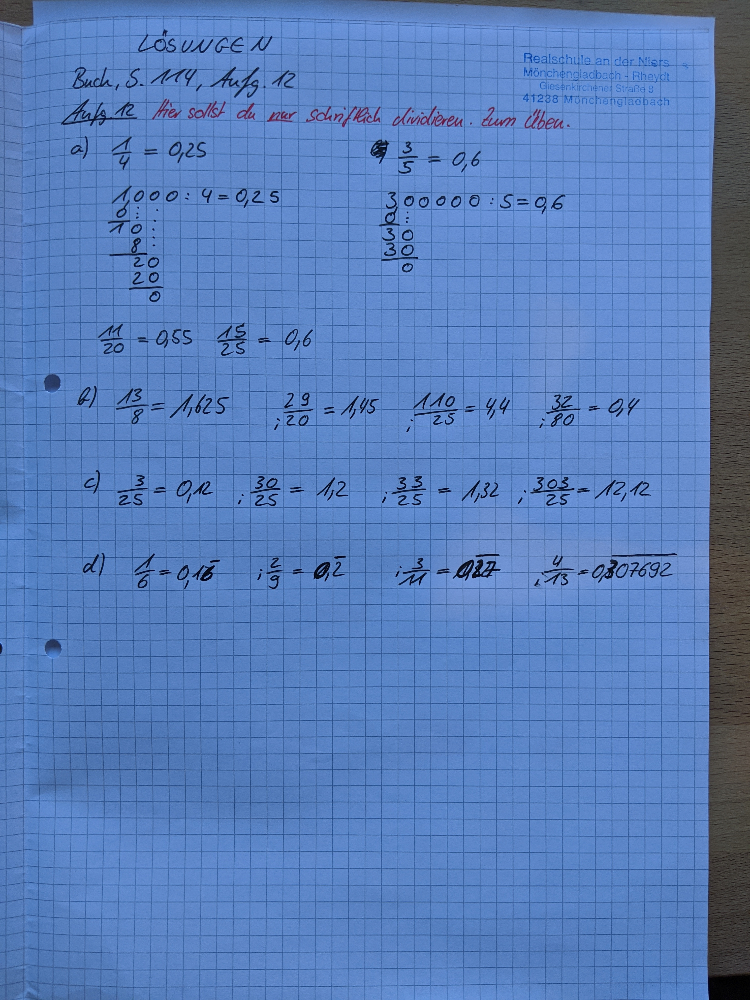 LÖSUNGEN
Realschule an der Niers
Mönchengladbach - Rheydt
Giesenkirchener Straße
41238 Mönchengladbach
Buch, S. 114, Aufg. 12
Aufg. 12 Hier sollst du nur schriftlich dividieren. Zum Üben.
a) 1/4 = 0,25 3/5 = 0,6
1,000 : 4 = 0,25 3,00000 : 5 = 0,6
0 0
10 30
8 30
20 0
20
0
11/20 = 0,55 15/25 = 0,6
b) 13/8 = 1,625 ; 29/20 = 1,45 ; 110/25 = 4,4 ; 32/80 = 0,4
c) 3/25 = 0,12 ; 30/25 = 1,2 ; 33/25 = 1,32 ; 303/25 = 12,12
d) 1/6 = 0,16̅ ; 2/9 = 0,2̅ ; 3/11 = ; 4/13 = 0,3̅0̅7̅6̅9̅2̅